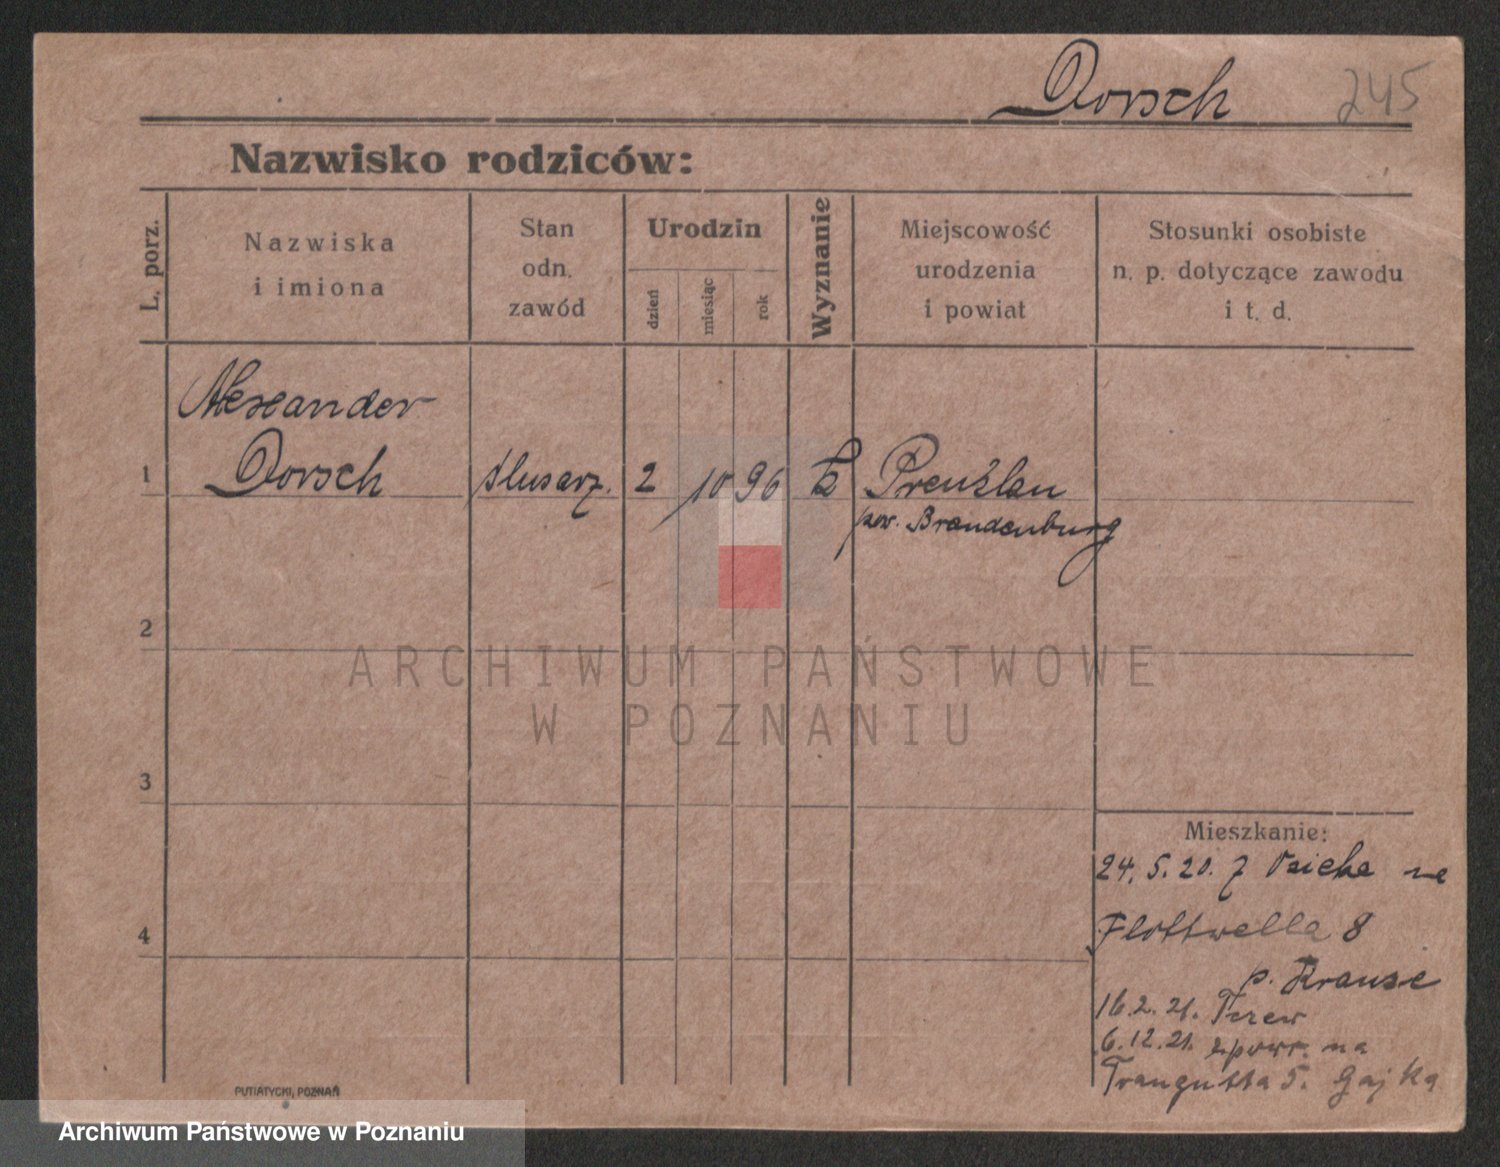 Dorsch 245
Nazwisko rodziców:
L. porz.
Nazwiska
i imiona
Stan
odn.
zawód
Urodzin
dzień
miesiąc
rok
Wyznanie
Miejscowość
urodzenia
i powiat
Stosunki osobiste
n. p. dotyczące zawodu
i t. d.
Alexander
1 Dorsch ślusarz. 2 10 96 Prenzlau
pow. Brandenburg
2
ARCHIWUM PAŃSTWOWE
W POZNANIU
3
Mieszkanie:
24. 5. 20. z na
Flottwella 8
4
p. Krause
16. 2. 21. Tczew
6. 12. 21. zpowr. na
Traugutta 5.
PUTIATYCKI, POZNAŃ
Archiwum Państwowe w Poznaniu